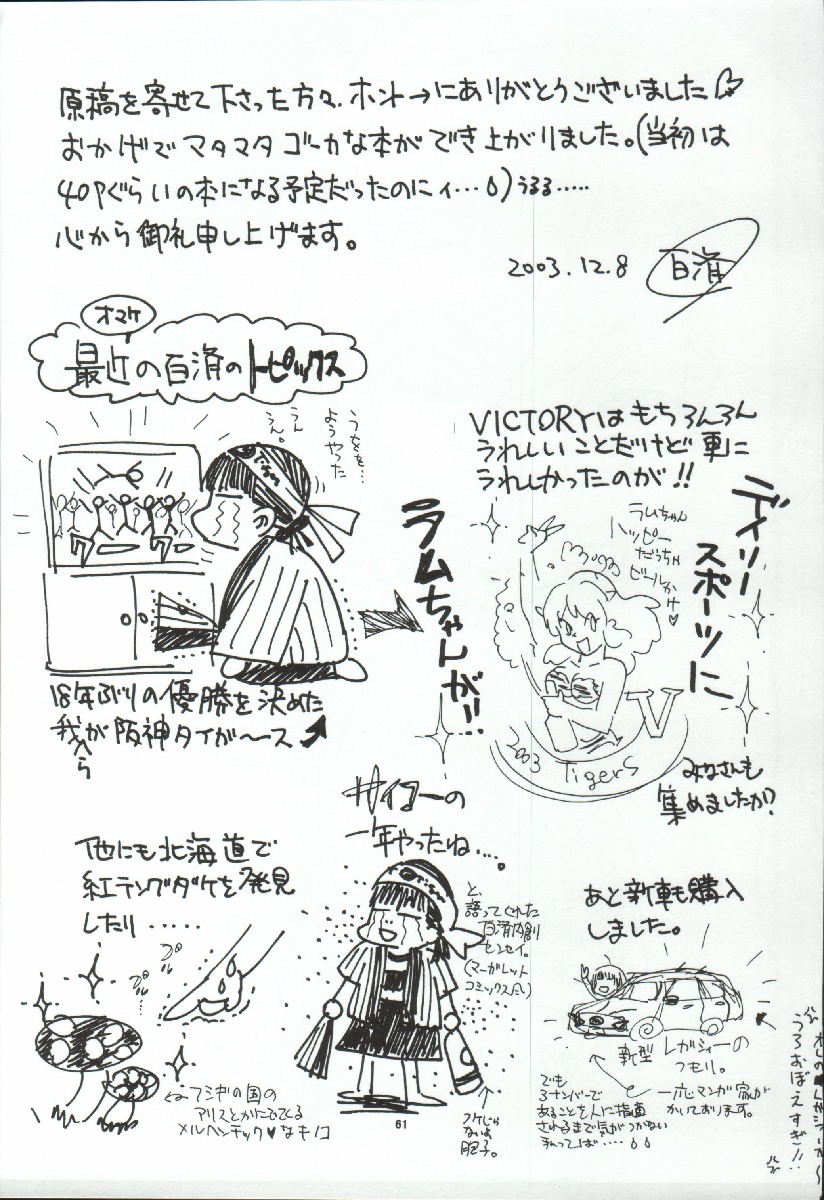 原稿を寄せて下さった方々、ホント→にありがとうございました
おかげでマタマタゴーカな本ができ上がりました。(当初は
40Pぐらいの本になる予定だったのにィ…)うるる……
心から御礼申し上げます。
2003.12.8
百済
オマケ
最近の百済のトーピックス
うをを…
ようやった
うん
うん。
18年ぶりの優勝を決めた
我が阪神タイガ〜ス
へら
ラムちゃんが!!
VICTORYはもちろんろん
うれしいことだけど更に
うれしかったのが!!
デイリー
スポーツに
ラムちゃん
ハッピー
だっちゃ
ビールかけ♥
V
2003 Tigers
みなさんも
集めましたか?
サイコーの
一年やったね…。
と、
語ってくれた
百済内創
センセイ。
(マーガレット
コミックスだし)
他にも北海道で
紅テングダケを発見
したり……
プル
プル
フシギの国の
アリスとかにでてくる
メルヘンチック♥なキノコ
61
フケじゃ
ないよ
胆子。
あと新車も購入
しました。
新型レガシィーの
つもり。
一応マンガ家が
かいております。
でも
3ナンバーで
あることを人に指摘
されるまで気がつかない
私ってば……
うろおぼえすぎ!!